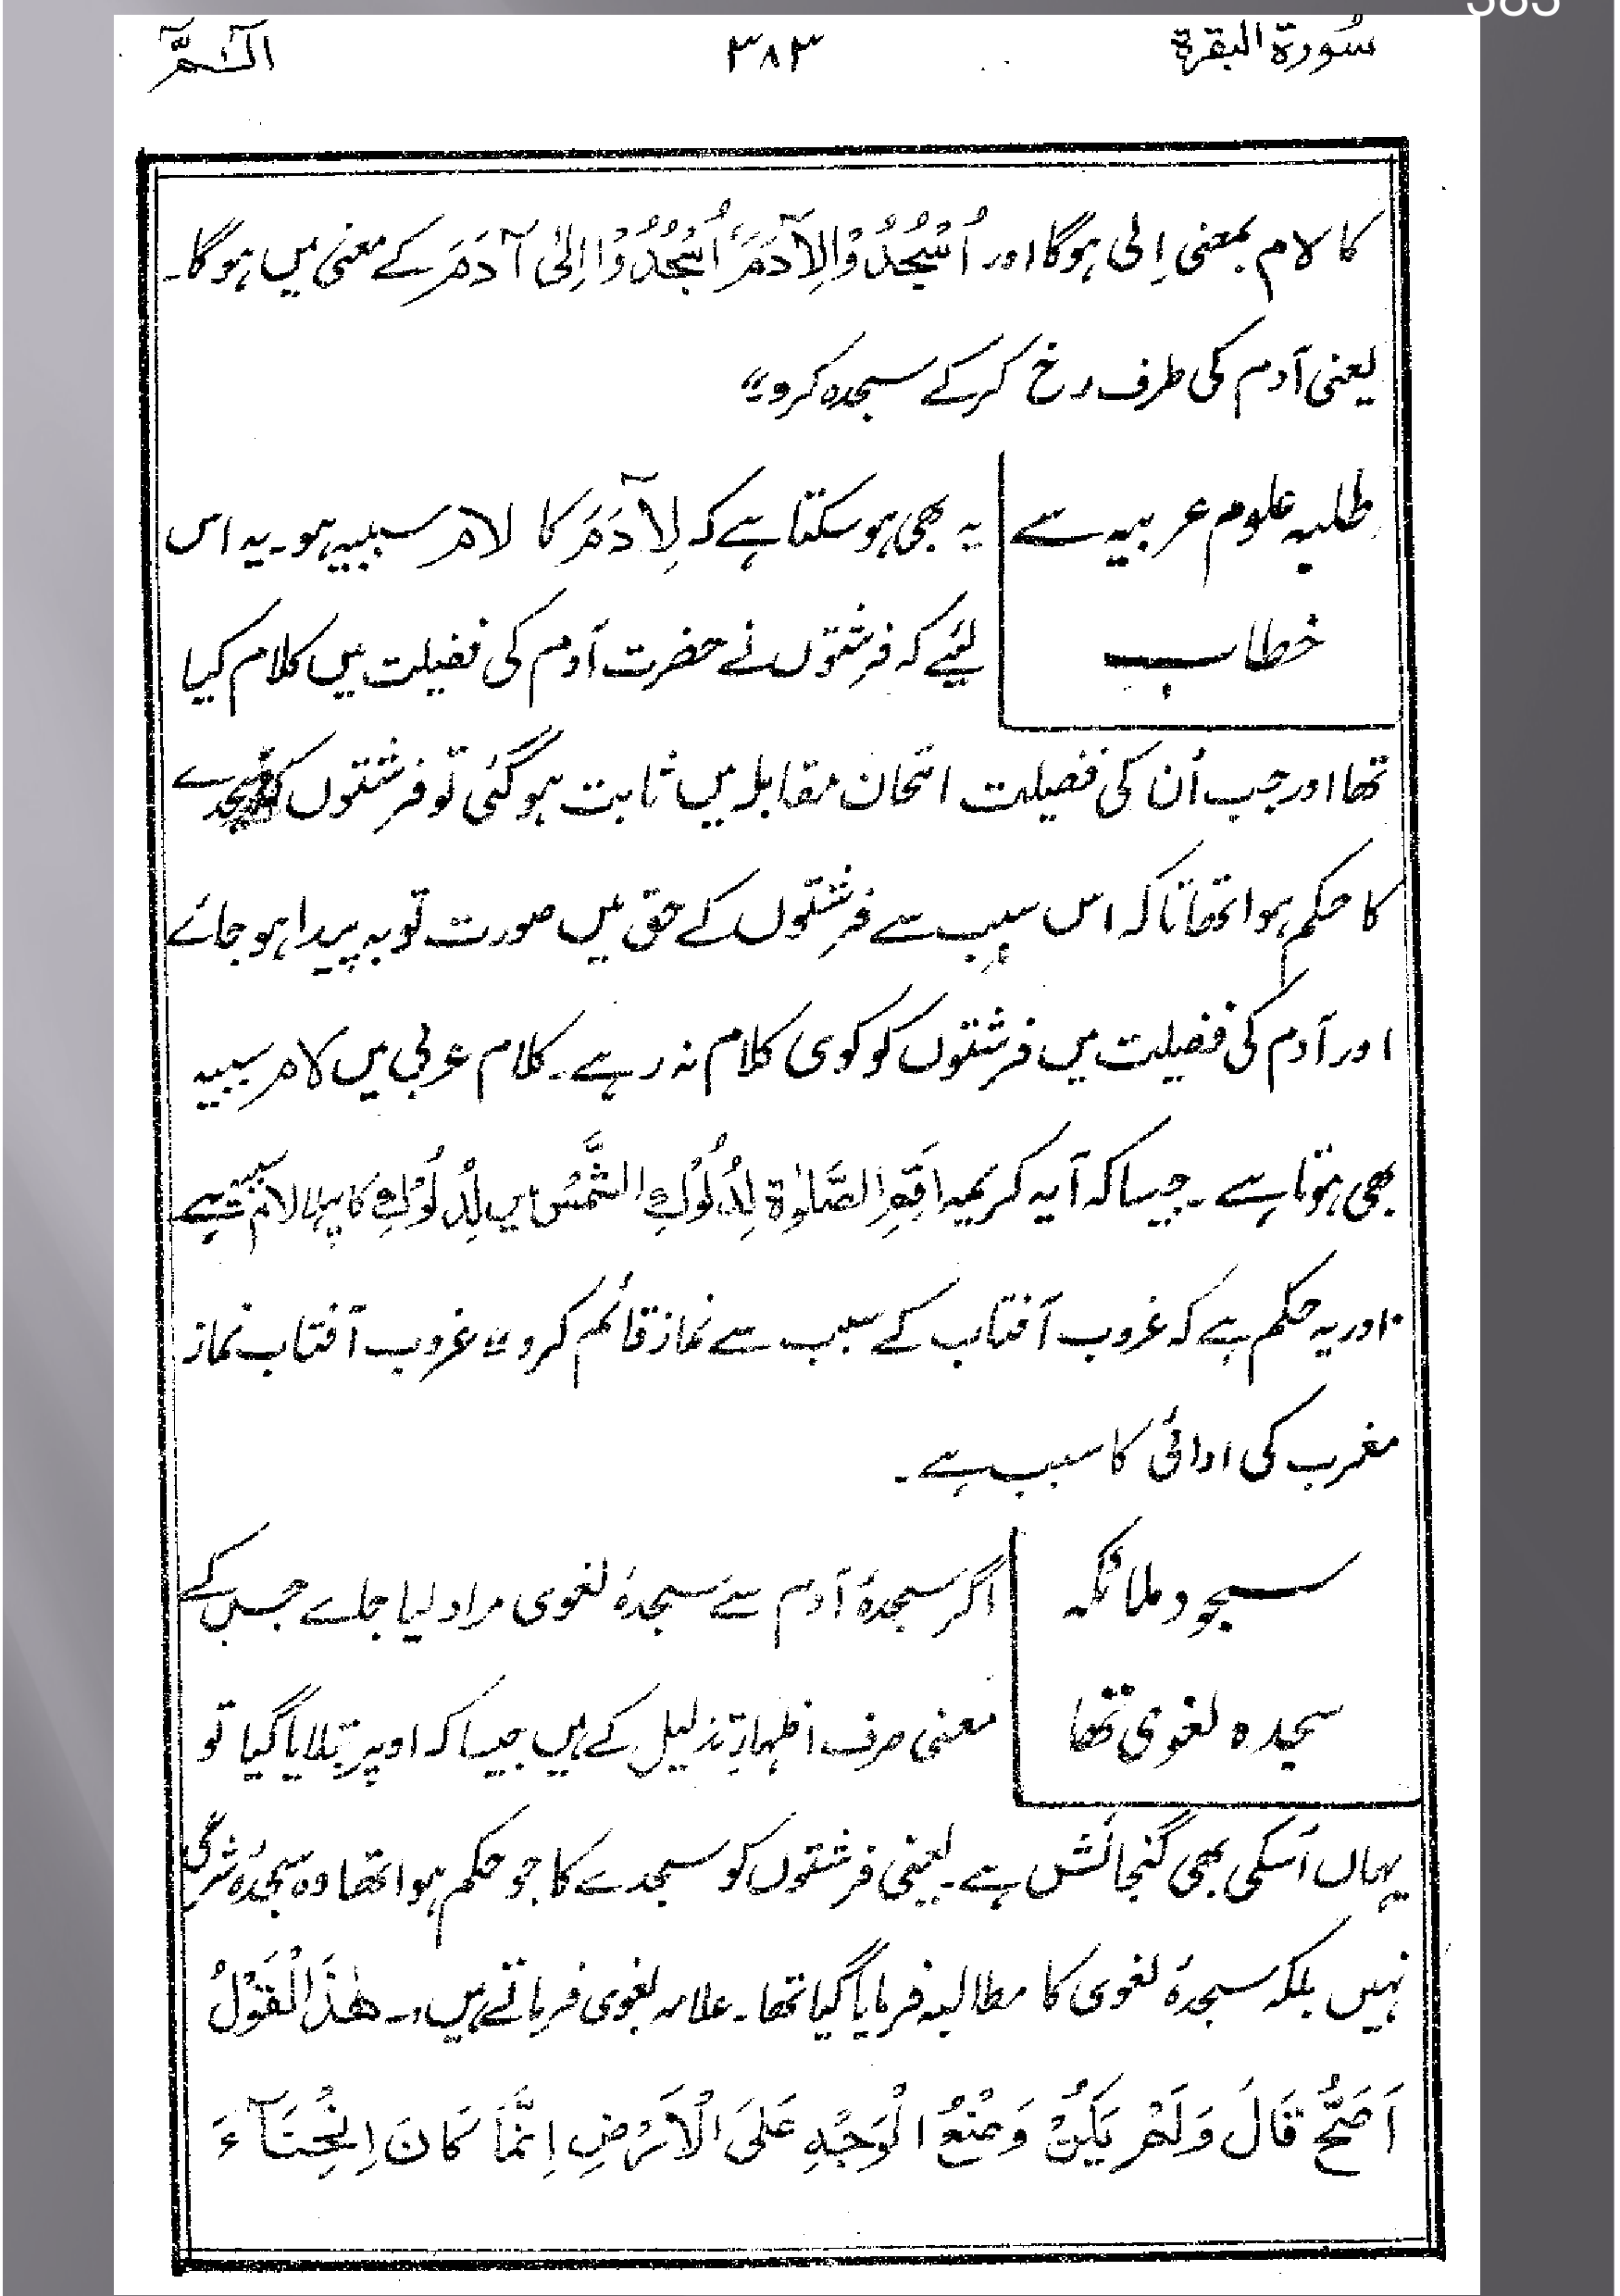 سُورة البقرة ٣٨٣ الٓـمّٓ
کا لام بمعنی اِلی ہوگا اور اُسْجُدُوْا لِاٰدَمَ اُسْجُدُوْا اِلیٰ آدَمَ کے معنی میں ہوگا۔
یعنی آدم کی طرف رخ کرکے سجدہ کرو ؛؛
طلبہ علوم عربیہ سے یہ بھی ہو سکتا ہے کہ لِاٰدَمَ کا لام سببیہ ہو۔ یہ اس
خطاب لئیے کہ فرشتوں نے حضرت آدم کی فضیلت میں کلام کیا
تھا اور جب اُن کی فضیلت امتحان مقابلہ میں ثابت ہو گئی تو فرشتوں کو سجدے
کا حکم ہوا تھا تاکہ اس سبب سے فرشتوں کے حق میں صورت توبہ پیدا ہو جائے
اور آدم کی فضیلت میں فرشتوں کو کوی کلام نہ رہے۔ کلام عربی میں لام سببیہ
بھی ہوتا ہے۔ جیسا کہ آیہ کریمہ اَقِمِ الصَّلوٰۃَ لِدُلُوْکِ الشَّمْسِ میں لِدُلُوْکِ کا پہلا لام سببیہ ہے
اور یہ حکم ہے کہ غروب آفتاب کے سبب سے نماز قائم کرو ؛؛ غروب آفتاب نماز
مغرب کی ادائی کا سبب ہے۔
سجود ملائکہ اگر سجدۂ آدم سے سجدۂ لغوی مراد لیا جاے جس کے
سجدہ لغوی تھا معنی صرف اظہارِ تذلیل کے ہیں جیسا کہ اوپر بتلایا گیا تو
یہاں اُسکی بھی گنجائش ہے۔ یعنی فرشتوں کو سجدے کا جو حکم ہوا تھا وہ سجدۂ شرعی
نہیں بلکہ سجدۂ لغوی کا مطالبہ فرمایا گیا تھا۔ علامہ بغوی فرماتے ہیں :۔ ھٰذَا الْقَوْلُ
اَصَحُّ قَالَ وَلَمْ یَکُنْ وَضْعُ الْوَجْہِ عَلَی الْاَرْضِ اِنَّمَا کَانَ اِنْحِنَآءً